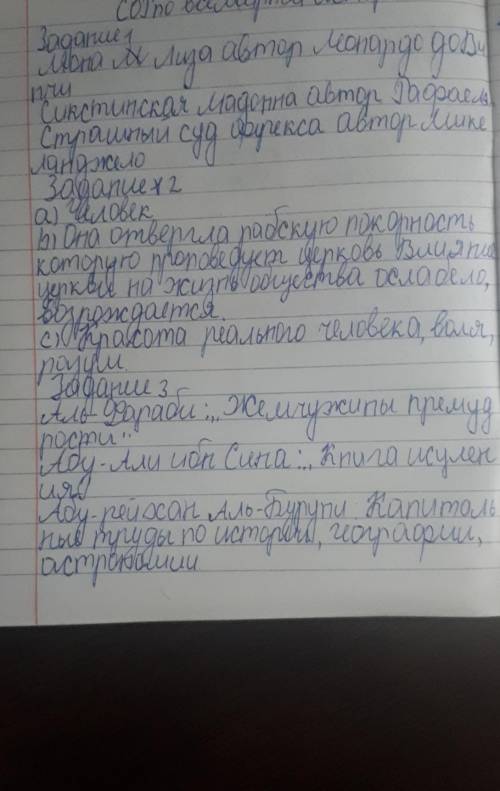 СОЧ по всемирной
Задание 1
Мона Лиза автор Леонардо до Ви
нчи
Сикстинская Мадонна автор Рафаель
Страшный суд фрекса автор Мике
ланджело
Задание №2
а) Человек
b) Она отвергла рабскую покорность
которую проповедует церковь Влияние
церкви на жизнь общества ослабело,
возрождается.
с) Красота реального человека, воля,
разум.
Задание 3
Аль-Фараби: „Жемчужины премуд
рости"
Абу-Али ибн Сина: „Книга исцелен
ия
Абу-рейхан Аль-Бируни Капиталь
ные труды по истории, географии,
астрономии